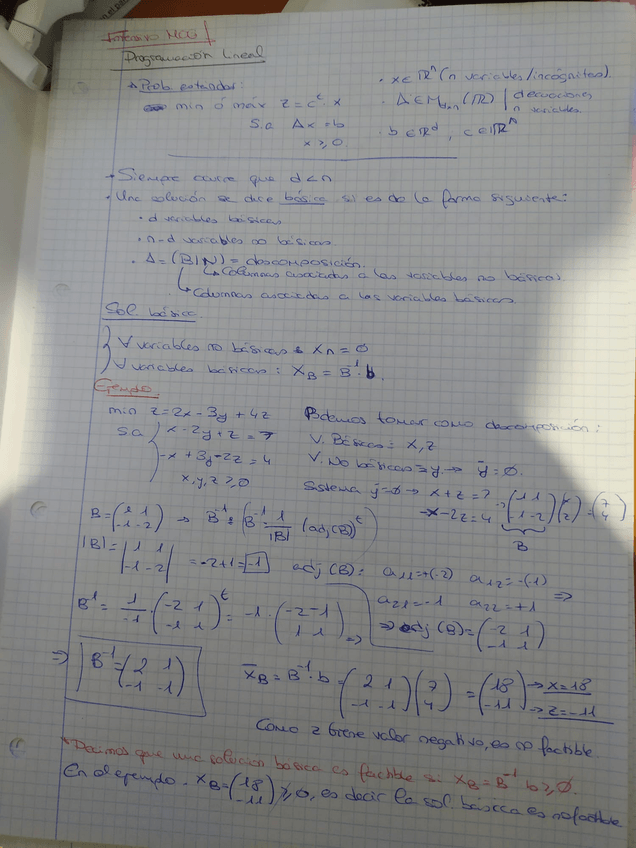 Intensivo MCG
Programación Lineal
Prob. estandar:
min ó máx z = cᵗ·x
s.a Ax = b
x ≥ 0
· x ∈ ℝⁿ (n variables/incógnitas).
· A ∈ M_{d×n}(ℝ) | d ecuaciones
n variables
· b ∈ ℝᵈ, c ∈ ℝⁿ
Siempre ocurre que d<n
· Una solución se dice básica si es de la forma siguiente:
· d variables básicas
· n-d variables no básicas.
· A = (B|N) = descomposición.
↳ columnas asociadas a las variables no básicas.
↳ columnas asociadas a las variables básicas.
Sol. básica
∀ variables no básicas: Xn = 0
∀ variables básicas: X_B = B⁻¹·b.
Ejemplo
min z = 2x - 3y + 4z
s.a x - 2y + z = 7
-x + 3y - 2z = 4
x, y, z ≥ 0
Podemos tomar como descomposición:
V. Básicas: x, z
V. No básicas = y → ȳ = 0.
Sistema ȳ = 0 → x + z = 7
-x - 2z = 4
(1 1 / -1 -2)(x / z) = (7 / 4)
B
B = (1 1 / -1 -2) → B⁻¹ = (B⁻¹ 1/|B| (adj(B))ᵗ)
|B| = |1 1 / -1 -2| = -2+1 = -1
adj(B): a₁₁ = +(-2) a₁₂ = -(-1) ⇒
a₂₁ = -1 a₂₂ = +1
⇒ adj(B) = (-2 1 / -1 1)
B⁻¹ = 1/-1 · (-2 1 / -1 1)ᵗ = -1 · (-2 -1 / 1 1) ⇒
⇒ B⁻¹ = (2 1 / -1 -1)
x̄_B = B⁻¹·b = (2 1 / -1 -1)(7 / 4) = (18 / -11) → x = 18
→ z = -11
Como z tiene valor negativo, es no factible.
*Decimos que una solución básica es factible si X_B = B⁻¹ b ≥ 0.
En el ejemplo, X_B = (18 / -11) ≱ 0, es decir la sol. básica es no factible